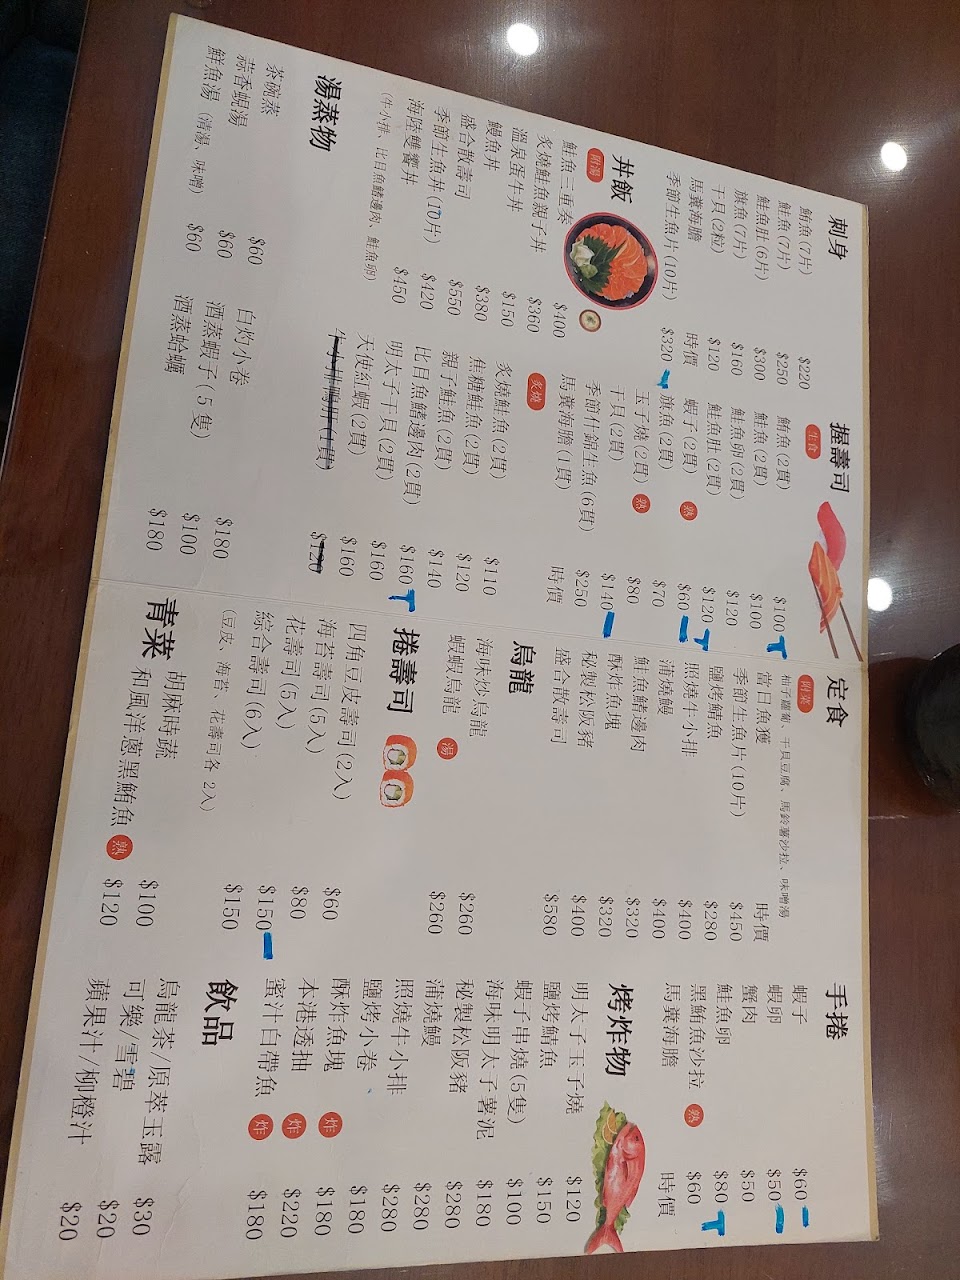 刺身
鮪魚(7片) $220
鮭魚(7片) $250
鮭魚肚(6片) $300
旗魚(7片) $160
干貝(2粒) $120
馬糞海膽 時價
季節生魚片(10片) $320
丼飯 附湯
鮭魚三重奏 $400
炙燒鮭魚親子丼 $360
溫泉蛋牛丼 $150
鰻魚丼 $380
盛合散壽司 $550
季節生魚丼(10片) $420
海陸雙響丼 $450
(牛小排、比目魚鰭邊肉、鮭魚卵)
湯蒸物
茶碗蒸 $60
蒜香蜆湯 $60
鮮魚湯 (清湯、味噌) $60
白灼小卷 $180
酒蒸蝦子(5隻) $100
酒蒸蛤蠣 $180
握壽司
生食
鮪魚(2貫) $100
鮭魚(2貫) $100
鮭魚卵(2貫) $120
鮭魚肚(2貫) $120
蝦子(2貫) 熟 $60
旗魚(2貫) $70
玉子燒(2貫) 熟 $80
干貝(2貫) $140
季節什錦生魚(6貫) $250
馬糞海膽(1貫) 時價
炙燒
炙燒鮭魚(2貫) $110
焦糖鮭魚(2貫) $120
親子鮭魚(2貫) $140
比目魚鰭邊肉(2貫) $160
明太子干貝(2貫) $160
天使紅蝦(2貫) $160
牛小排鴨肝(1貫) $120
定食
附菜 柚子蘿蔔、干貝豆腐、馬鈴薯沙拉、味噌湯
當日魚獲 時價
季節生魚片(10片) $450
鹽烤鯖魚 $280
照燒牛小排 $400
蒲燒鰻 $400
鮭魚鰭邊肉 $320
酥炸魚塊 $320
秘製松阪豬 $400
盛合散壽司 $580
烏龍
海味炒烏龍 $260
蝦蝦烏龍 湯 $260
捲壽司
四角豆皮壽司(2入) $60
海苔壽司(5入) $80
花壽司(5入) $150
綜合壽司(6入) $150
(豆皮、海苔、花壽司各 2入)
青菜
胡麻時蔬 $100
和風洋蔥黑鮪魚 熟 $120
手捲
蝦子 $60
蝦卵 $50
蟹肉 $50
鮭魚卵 $80
黑鮪魚沙拉 熟 $60
馬糞海膽 時價
烤炸物
明太子玉子燒 $120
鹽烤鯖魚 $150
蝦子串燒(5隻) $100
海味明太子薯泥 $180
秘製松阪豬 $280
蒲燒鰻 $280
照燒牛小排 $280
鹽烤小卷 $180
酥炸魚塊 炸 $180
本港透抽 炸 $220
蜜汁白帶魚 炸 $180
飲品
烏龍茶/原萃玉露 $30
可樂/雪碧 $20
蘋果汁/柳橙汁 $20